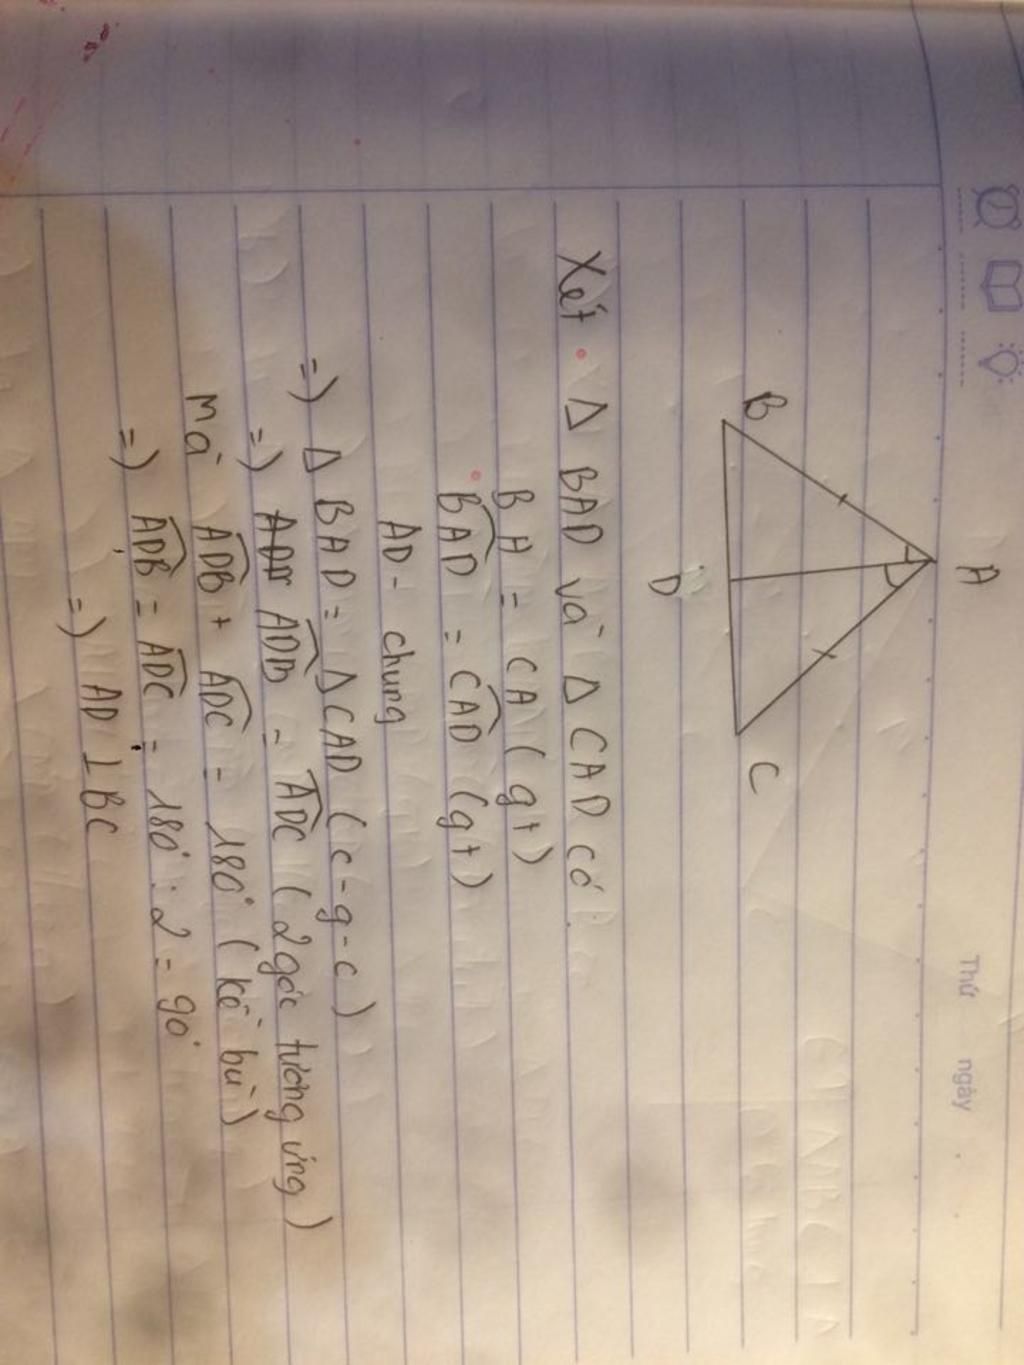 Thứ ngày
A
B
C
D
Xét Δ BAD và Δ CAD có
BA = CA (gt)
B̂AD = ĈAD (gt)
AD - chung
=) Δ BAD = Δ CAD (c-g-c)
=) ÂDB = ÂDC (2 góc tương ứng)
mà ÂDB + ÂDC = 180° (kề bù)
=) ÂDB = ÂDC = 180° : 2 = 90°
=) AD ⊥ BC